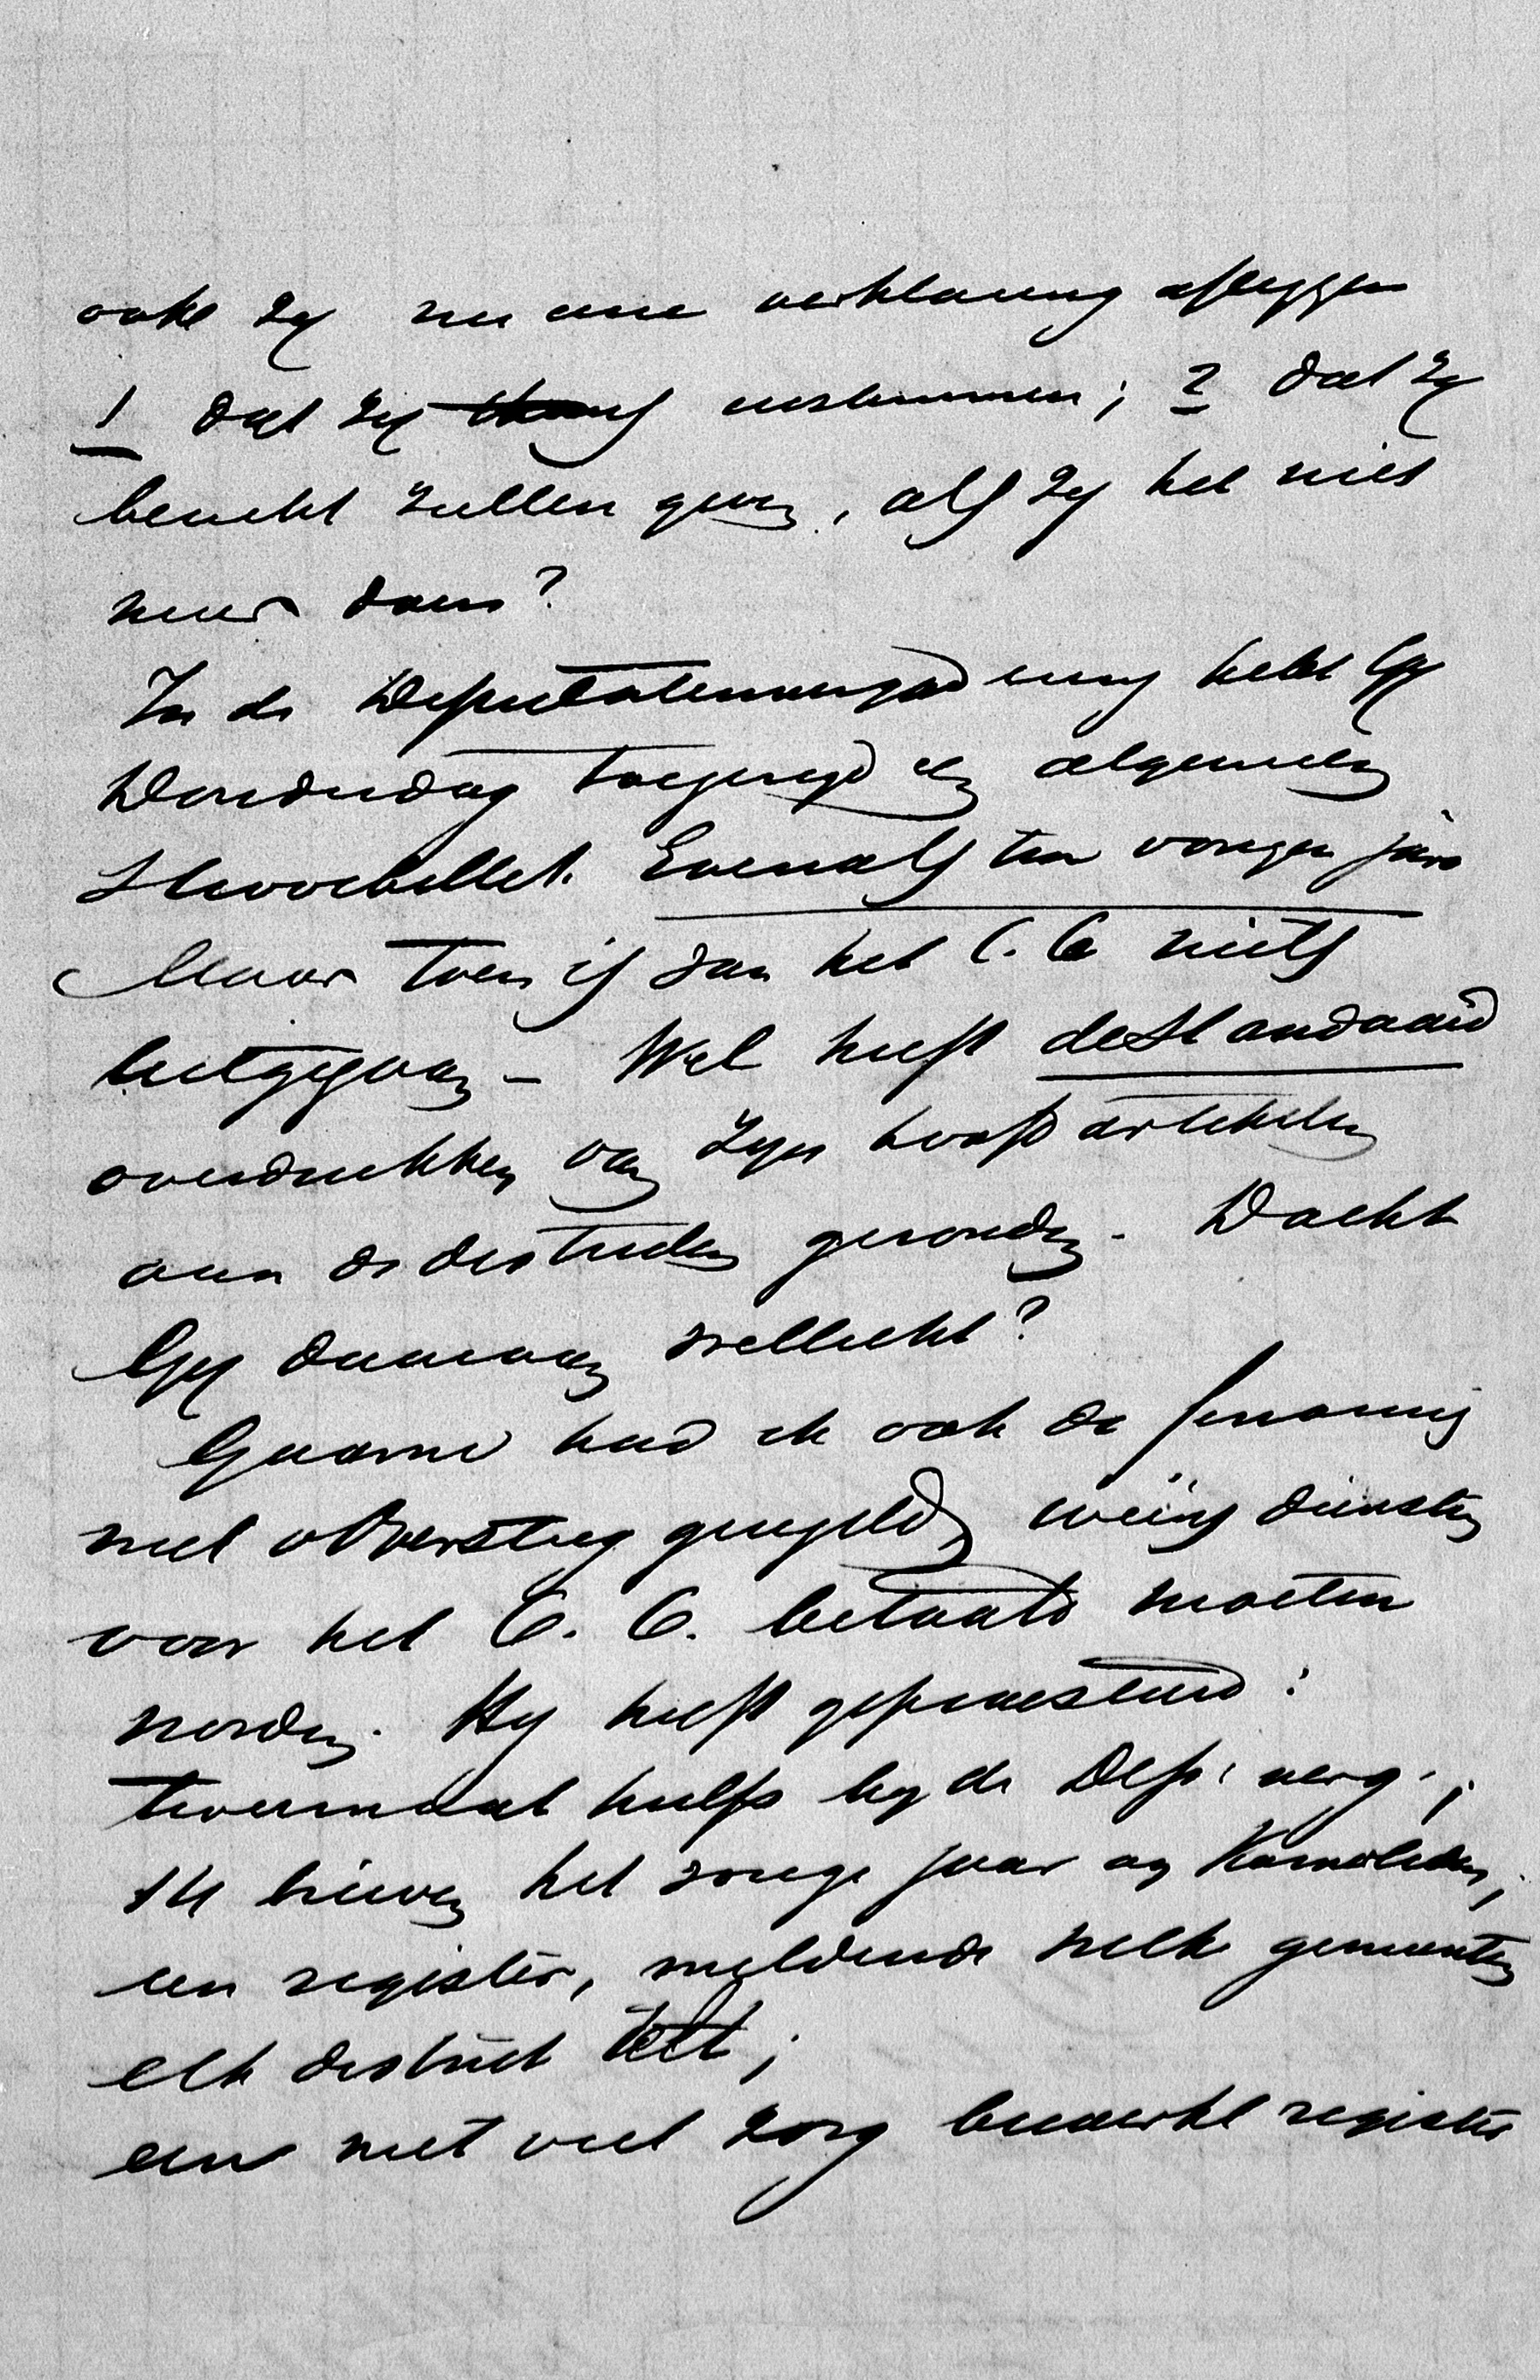 ook zij nu eene verklaring afleggen
1 dat zij instemmen; 2 dat zij
bericht zullen geven, als zij het niet
meer doen?
In de Deputatenvergadering hebt Gij
Donderdag toegezegd een algemeen
Strooibillet. Evenals ten vorigen jare
Maar toen is van het C. C. niets
uitgegaan – Wel heeft de Standaard
overdrukken van zijn hoofdartikelen
aan de districten gezonden. Dacht
Gij daaraan wellicht?
Gaarne had ik ook de
met Oversteeg geregeld wiens diensten
voor het C. C. betaald moeten
worden. Hij heeft gepraesteerd:
tweemaal hulp bij de Dep. verg.;
14 brieven het vorige jaar aan Kamerleden;
een register, meldende welke gemeenten
elk district telt;
een met veel zorg bewerkt register